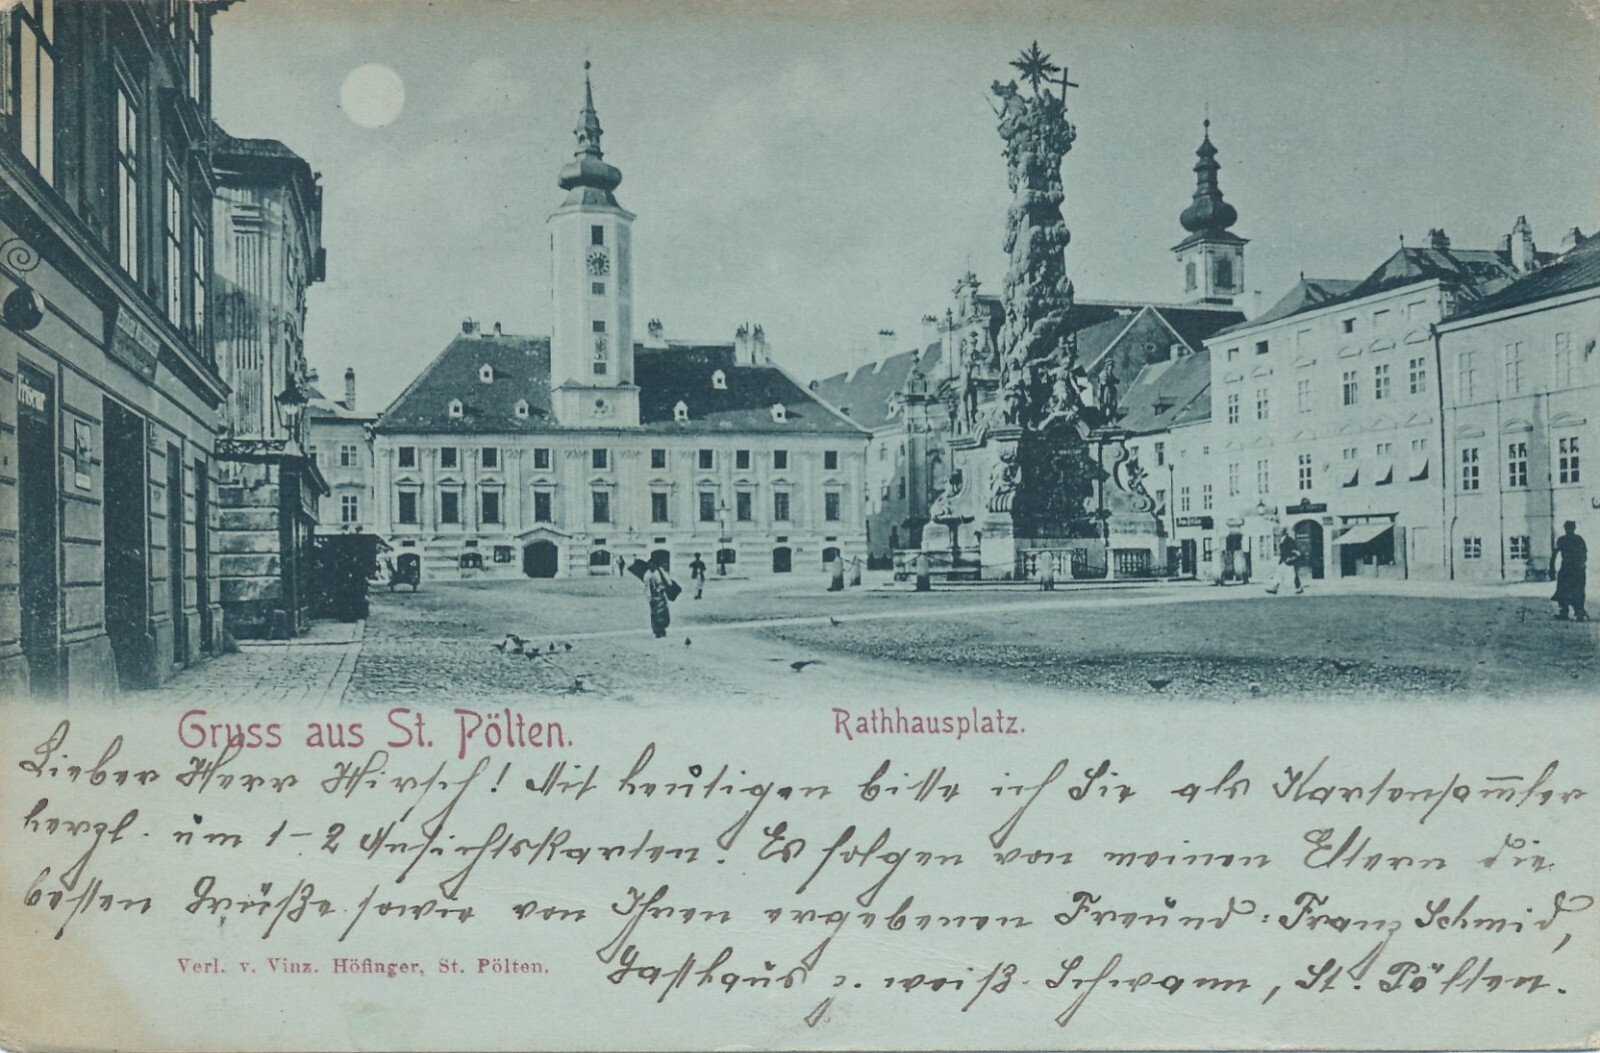 Friseur
Gruss aus St. Pölten.
Rathhausplatz.
Lieber Herr Hirsch! Mit heutigen bitte ich Sie als Kartensam̅ler
herzl. um 1–2 Ansichtskarten. Es folgen von meinen Eltern die
besten Grüße sowie von Ihren ergebenen Freund: Franz Schmid,
Gasthaus z. weiß. Schwann, St. Pölten.
Verl. v. Vinz. Höfinger, St. Pölten.